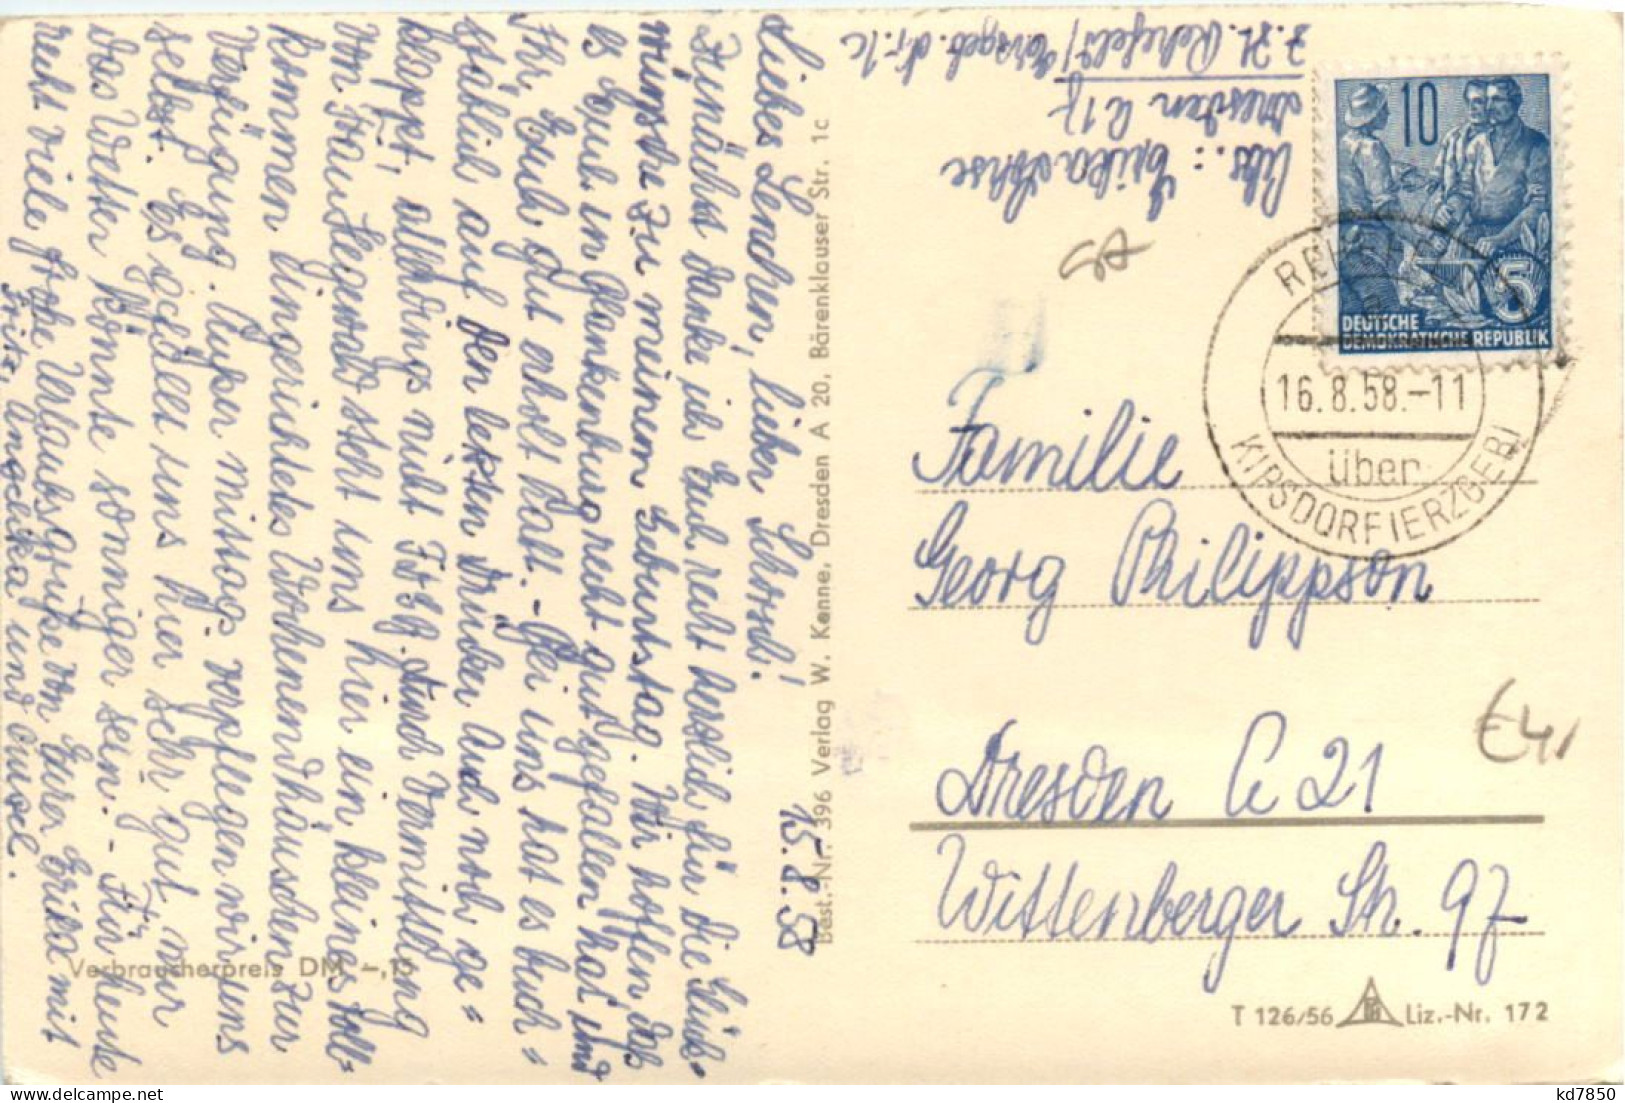 15.8.58
Liebes Lenchen, lieber Schorsch!
Zunächst danke ich Euch recht herzlich für die Glück=
wünsche zu meinem Geburtstag. Wir hoffen, daß
es Euch in Blankenburg recht gut gefallen hat und
Ihr Euch gut erholt habt. - Bei uns hat es buch=
stäblich auf den letzten Drücker auch noch ge=
klappt, allerdings nicht FDGB. Durch Vermittlung
von Frau Liegewald steht uns hier ein kleines voll=
kommen eingerichtetes Wochenendhäuschen zur
Verfügung. Außer mittags verpflegen wir uns
selbst. Es gefällt uns hier sehr gut, nur
das Wetter könnte sonniger sein. - Für heute
recht viele frohe Urlaubsgrüße von Eurer Erika mit
Fritz, Angelika und
Abs.: Erika Lohse
Dresden A 17
z. Zt. Rehefeld/Erzgeb.
Best.-Nr. 396 Verlag W. Kenne, Dresden A 20, Bärenklauser Str. 1c
10
5
DEUTSCHE
DEMOKRATISCHE REPUBLIK
REHEFELD
16.8.58.-11
über
KIPSDORF(ERZGEB)
Familie
Georg Philippson
Dresden A 21
Wittenberger Str. 97
€4,
Verbraucherpreis DM -,
T 126/56 Liz.-Nr. 172
kd7850